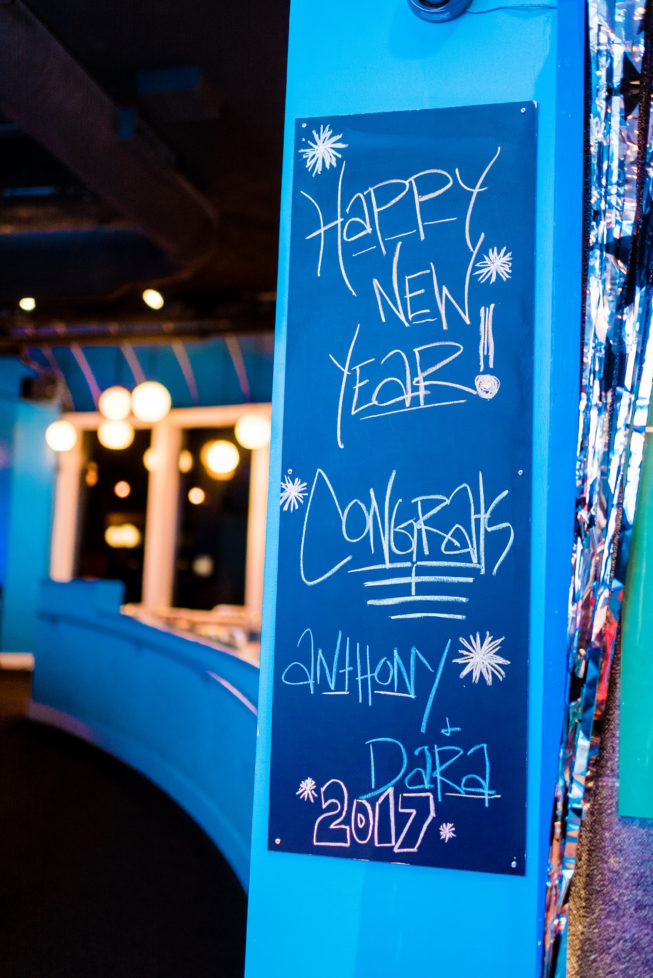 HAPPY
NEW
YEAR!
CONGRATS
ANTHONY
+
DARA
2017